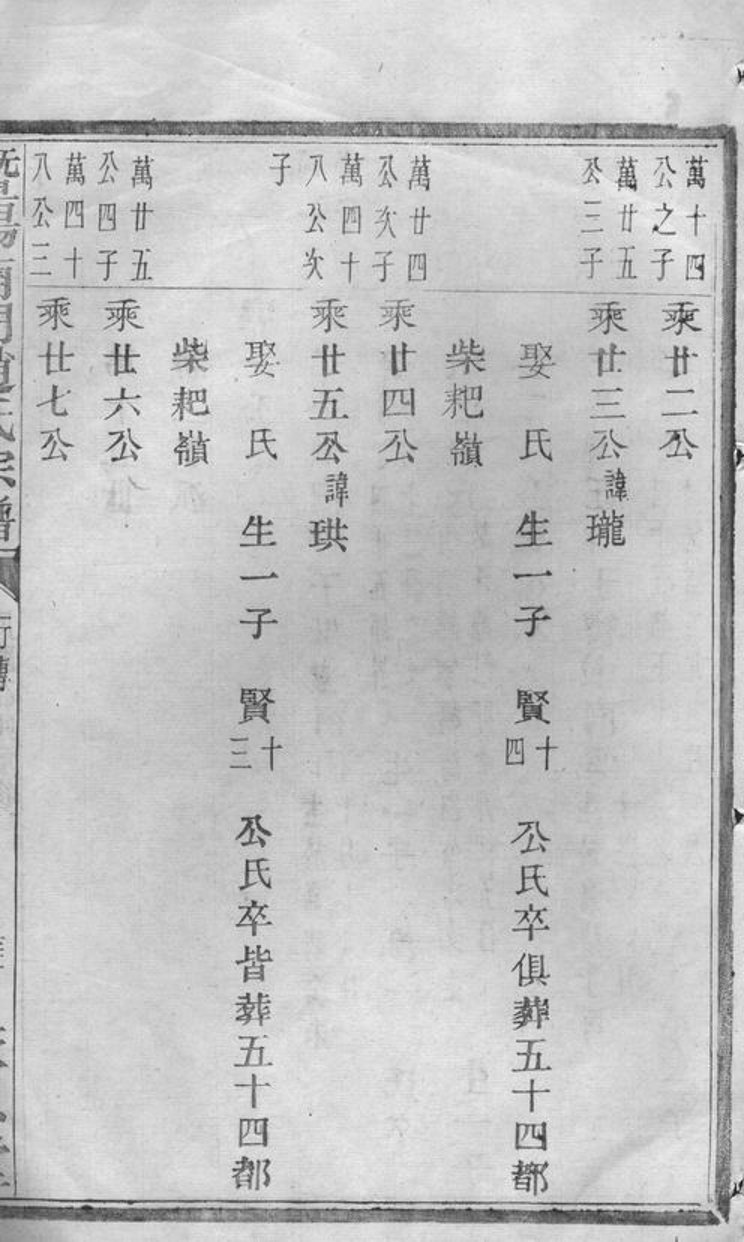 萬十四
公之子
乘廿二公
萬廿五
公三子
乘廿三公諱瓏
娶 氏 生一子 賢十四 公氏卒俱葬五十四都
柴耙嶺
萬廿四
公次子
乘廿四公
萬四十
八公次
子
乘廿五公諱珙
娶 氏 生一子 賢十三 公氏卒皆葬五十四都
柴耙嶺
萬廿五
公四子
乘廿六公
萬四十
八公三
乘廿七公
暨陽南門趙氏宗譜
行傳